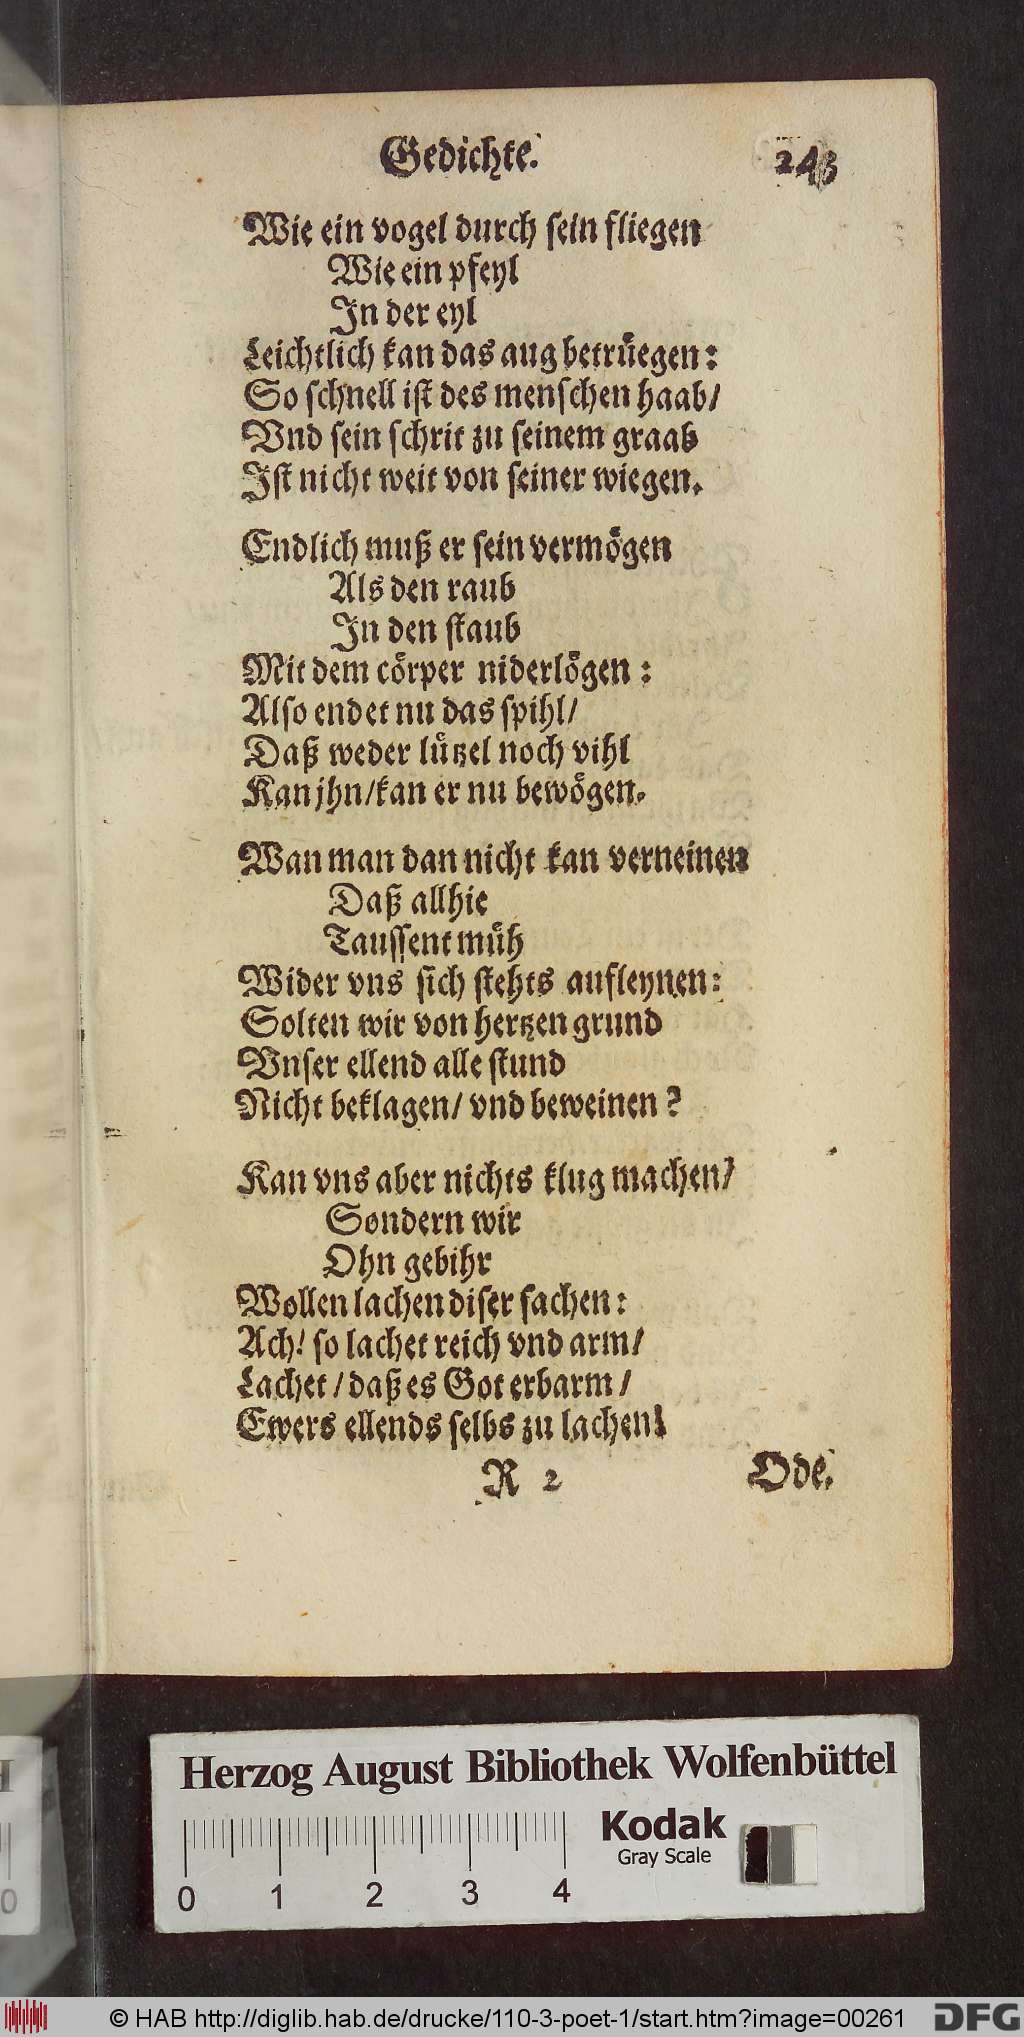 Gedichte. 243
Wie ein vogel durch sein fliegen
Wie ein pfeyl
In der eyl
Leichtlich kan das aug betrüegen:
So schnell ist des menschen haab/
Vnd sein schrit zu seinem graab
Ist nicht weit von seiner wiegen.
Endlich muß er sein vermögen
Als den raub
In den staub
Mit dem cörper niderlögen:
Also endet nu das spihl/
Daß weder lützel noch vihl
Kan jhn/kan er nu bewögen.
Wan man dan nicht kan verneinen
Daß allhie
Taussent müh
Wider vns sich stehts aufleynen:
Solten wir von hertzen grund
Vnser ellend alle stund
Nicht beklagen/ vnd beweinen?
Kan vns aber nichts klug machen/
Sondern wir
Ohn gebihr
Wollen lachen diser sachen:
Ach! so lachet reich vnd arm/
Lachet/daß es Got erbarm/
Ewers ellends selbs zu lachen!
R 2 Ode.
Herzog August Bibliothek Wolfenbüttel
Kodak
Gray Scale
0 1 2 3 4
© HAB http://diglib.hab.de/drucke/110-3-poet-1/start.htm?image=00261
DFG